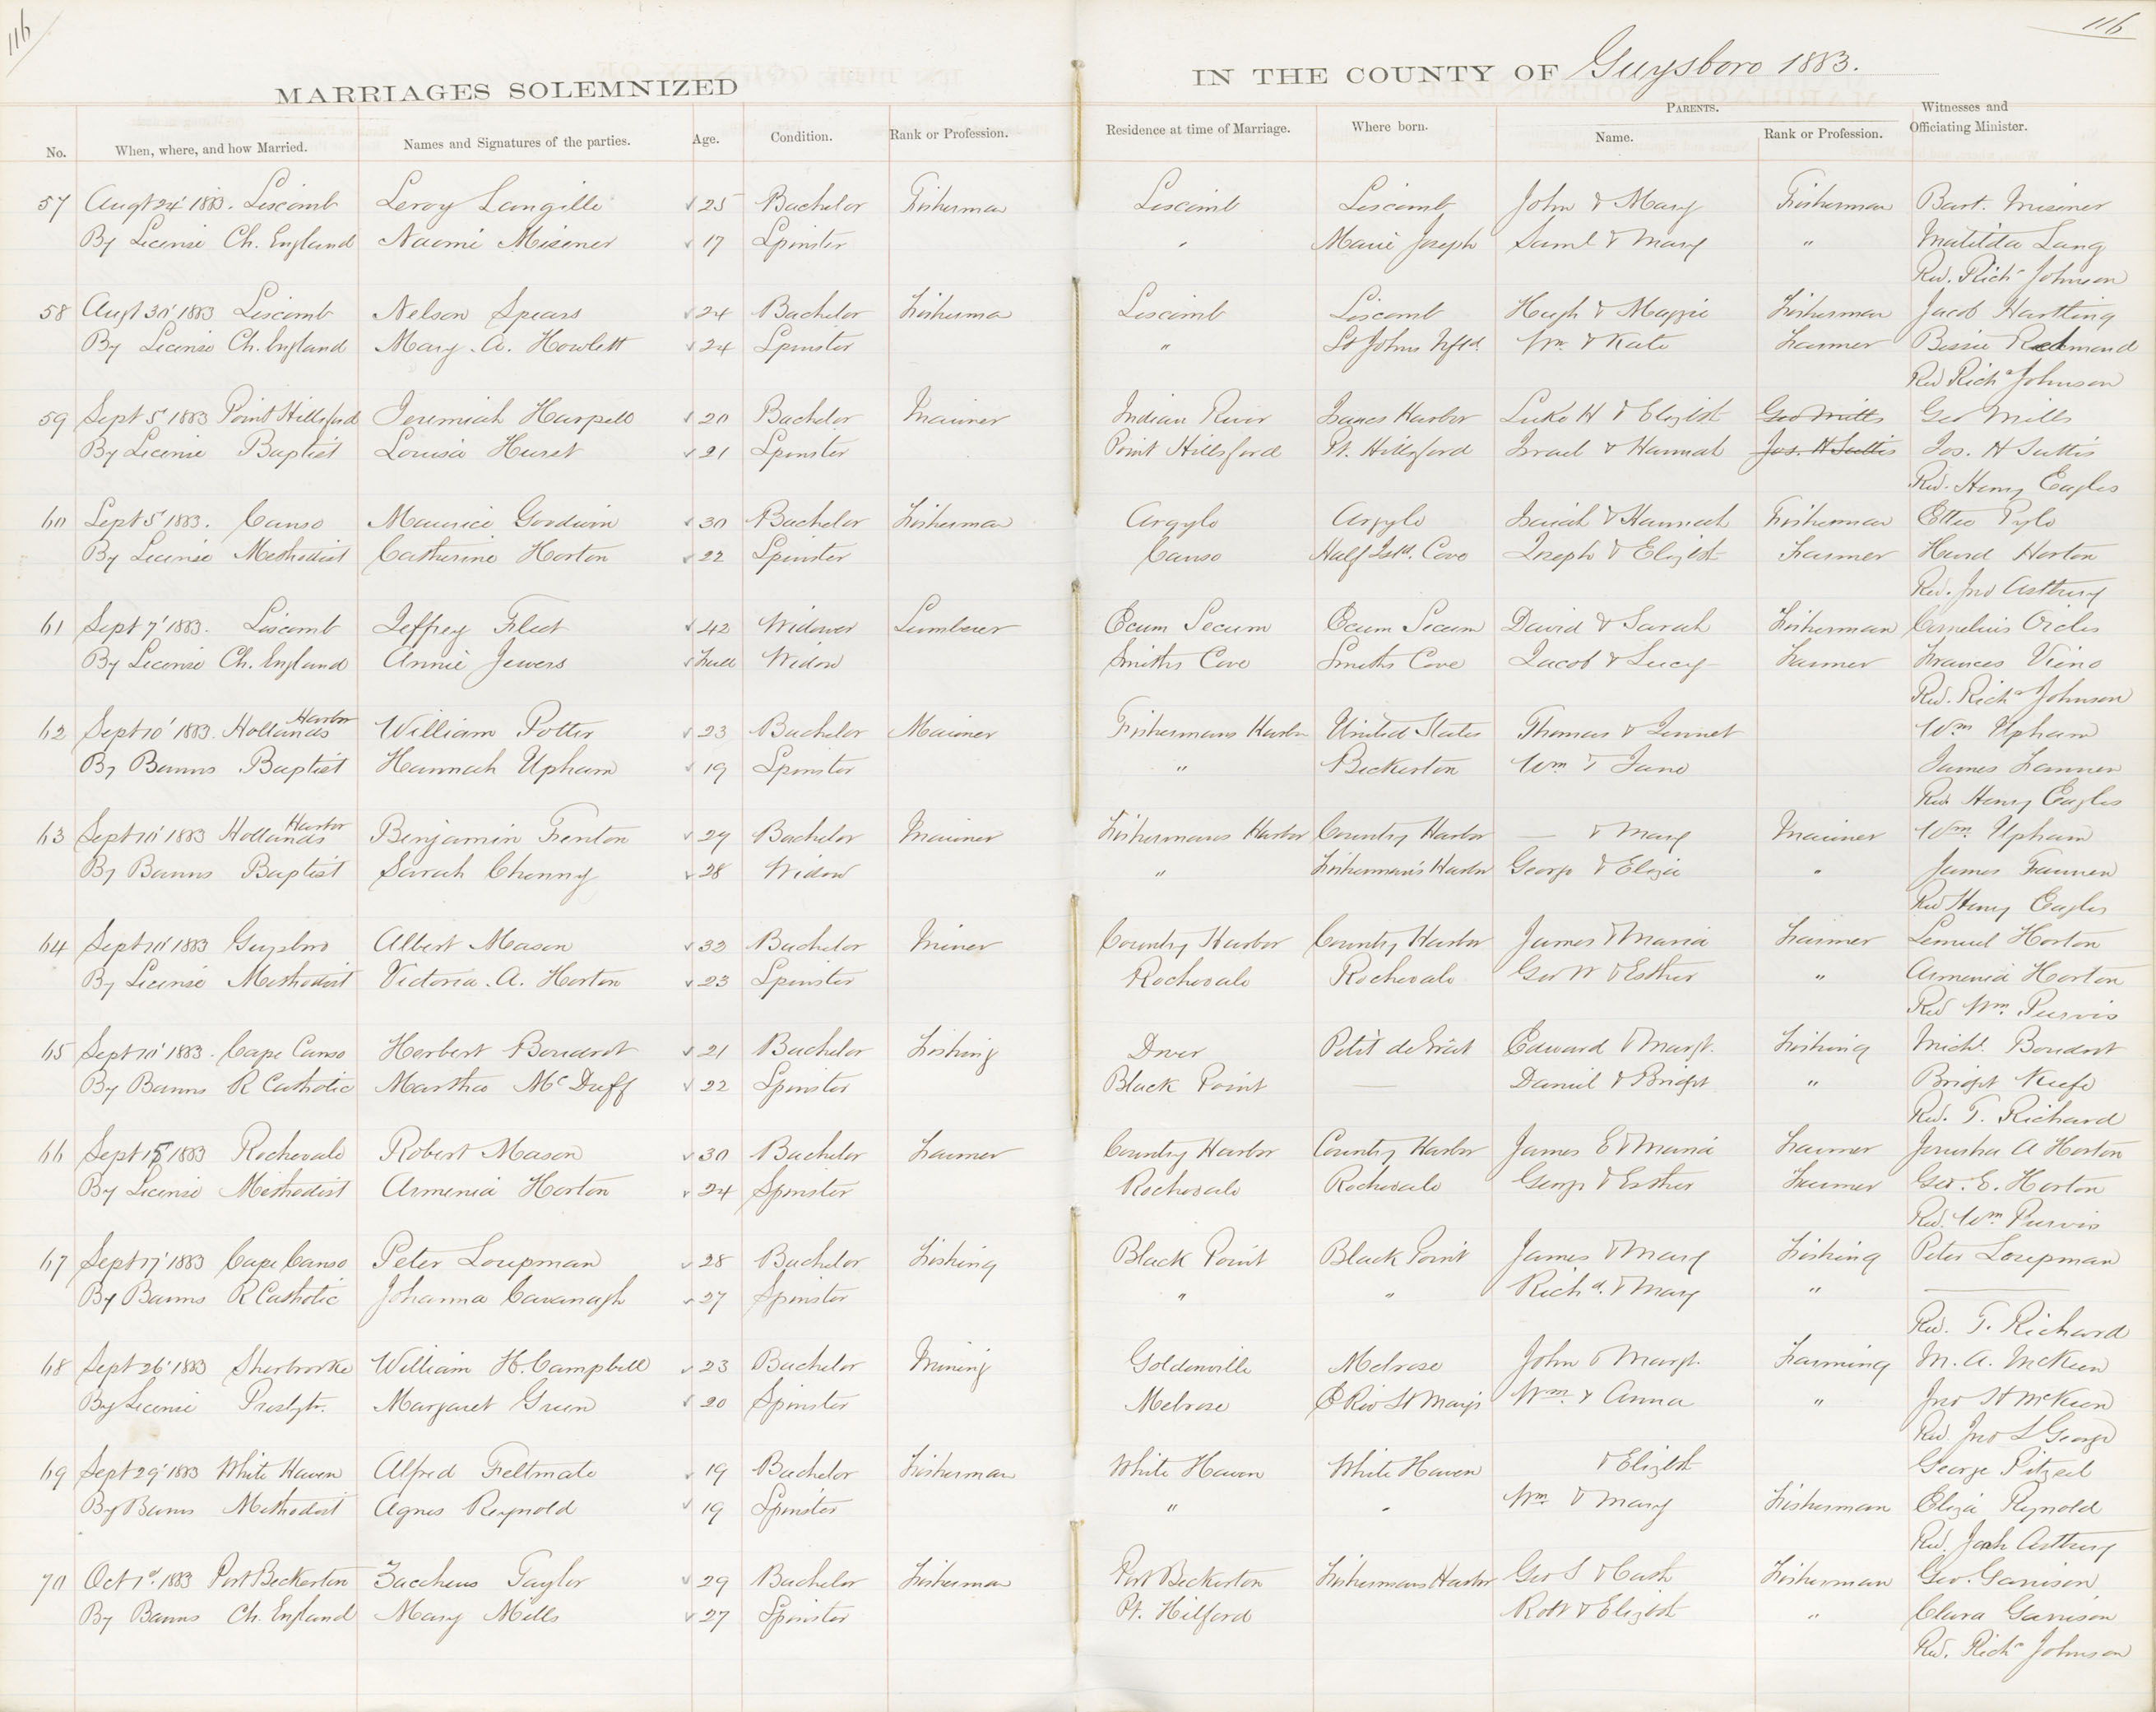 116
116
MARRIAGES SOLEMNIZED IN THE COUNTY OF Guysboro 1883.
No. When, where, and how Married. Names and Signatures of the parties. Age. Condition. Rank or Profession. Residence at time of Marriage. Where born. PARENTS. Name. Rank or Profession. Witnesses and Officiating Minister.
57 Augt 24' 1883. Liscomb Leroy Langille 25 Bachelor Fisherman Liscomb Liscomb John & Mary Fisherman Bart. Misiner
By License Ch. England Naomi Misener 17 Spinster " Marie Joseph Saml & Mary " Matilda Lang
Rev. Richd Johnson
58 Augt 30' 1883 Liscomb Nelson Spears 24 Bachelor Fisherman Liscomb Liscomb Hugh & Maggie Fisherman Jacob Hartling
By License Ch. England Mary A. Howlett 24 Spinster " St Johns Nfld. Wm & Kate Farmer Bessie Redmond
Rev Richd Johnson
59 Sept 5' 1883 Point Hillsford Jeremiah Harpell 20 Bachelor Mariner Indian River Isaacs Harbor Luke H & Elizbt Geo Mills Geo Mills
By License Baptist Louisa Hurst 21 Spinster Point Hillsford Pt. Hillsford Israel & Hannah Jos. H Suttis Jos. H Suttis
Rev. Henry Eagles
60 Sept 5' 1883. Canso Maurice Goodwin 30 Bachelor Fisherman Argyle Argyle Isaiah & Hannah Fisherman Ettie Pyle
By License Methodist Catherine Horton 22 Spinster Canso Half Isld. Cove Joseph & Elizbt Farmer Hurd Horton
Rev. Jno Astbury
61 Sept 7' 1883. Liscomb Jeffrey Fleet 42 Widower Lumberer Ecum Secum Ecum Secum David & Sarah Fisherman Cornelius Oicles
By License Ch. England Annie Jewers Full Widow Smiths Cove Smiths Cove Jacob & Lucy Farmer Frances Vieno
Rev. Richd Johnson
62 Sept 10' 1883. Hollands Harbor William Potter 23 Bachelor Mariner Fishermans Harbor United States Thomas & Jennet Wm Upham
By Banns Baptist Hannah Upham 19 Spinster " Beckerton Wm & Jane James Fanner
Rev Henry Eagles
63 Sept 10' 1883 Hollands Harbor Benjamin Fenton 29 Bachelor Mariner Fishermans Harbor Country Harbor — & Mary Mariner Wm. Upham
By Banns Baptist Sarah Chenny 28 Widow " Fisherman's Harbor George & Eliza " James Fannen
Rev Henry Eagles
64 Sept 10' 1883 Guysboro Albert Mason 32 Bachelor Miner Country Harbor Country Harbor James & Maria Farmer Lemuel Horton
By License Methodist Victoria A. Horton 23 Spinster Rochevale Rochevale Geo W & Esther " Armenia Horton
Rev Wm. Purvis
65 Sept 10' 1883. Cape Canso Herbert Boudrot 21 Bachelor Fishing Dover Petit de Grat Edward & Margt. Fishing Michl. Boudrot
By Banns R Catholic Martha McDuff 22 Spinster Black Point — Daniel & Bridgt " Bridgt Keefe
Rev. T. Richard
66 Sept 15 1883 Rochevale Robert Mason 30 Bachelor Farmer Country Harbor Country Harbor James E & Maria Farmer Jerusha A Horton
By License Methodist Armenia Horton 24 Spinster Rochevale Rochevale George & Esther Farmer Geo. E. Horton
Rev. Wm Purvis
67 Sept 17' 1883 Cape Canso Peter Loupman 28 Bachelor Fishing Black Point Black Point James & Mary Fishing Peter Loupman
By Banns R Catholic Johanna Cavanagh 27 Spinster " " Richd. & Mary " —
Rev. T. Richard
68 Sept 26' 1883 Sherbrooke William H. Campbell 23 Bachelor Mining Goldenville Melrose John & Margt. Farming M. A. McKeen
By License Presbytr. Margaret Green 20 Spinster Melrose E Riv St Marys Wm. & Anna " Jno H McKeen
Rev. Jno L George
69 Sept 29' 1883 White Haven Alfred Feltmate 19 Bachelor Fisherman White Haven White Haven & Elizbt George Pitzel
By Banns Methodist Agnes Reynold 19 Spinster " " Wm & Mary Fisherman Eliza Reynold
Rev. Astbury
70 Oct 1st 1883 Port Beckerton Zaccheus Taylor 29 Bachelor Fisherman Port Beckerton Fishermans Harbor Geo S & Cath Fisherman Geo. Garrison
By Banns Ch. England Mary Mills 27 Spinster Pt. Hilford Robt & Elizbt " Clara Garrison
Rev. Richd Johnson